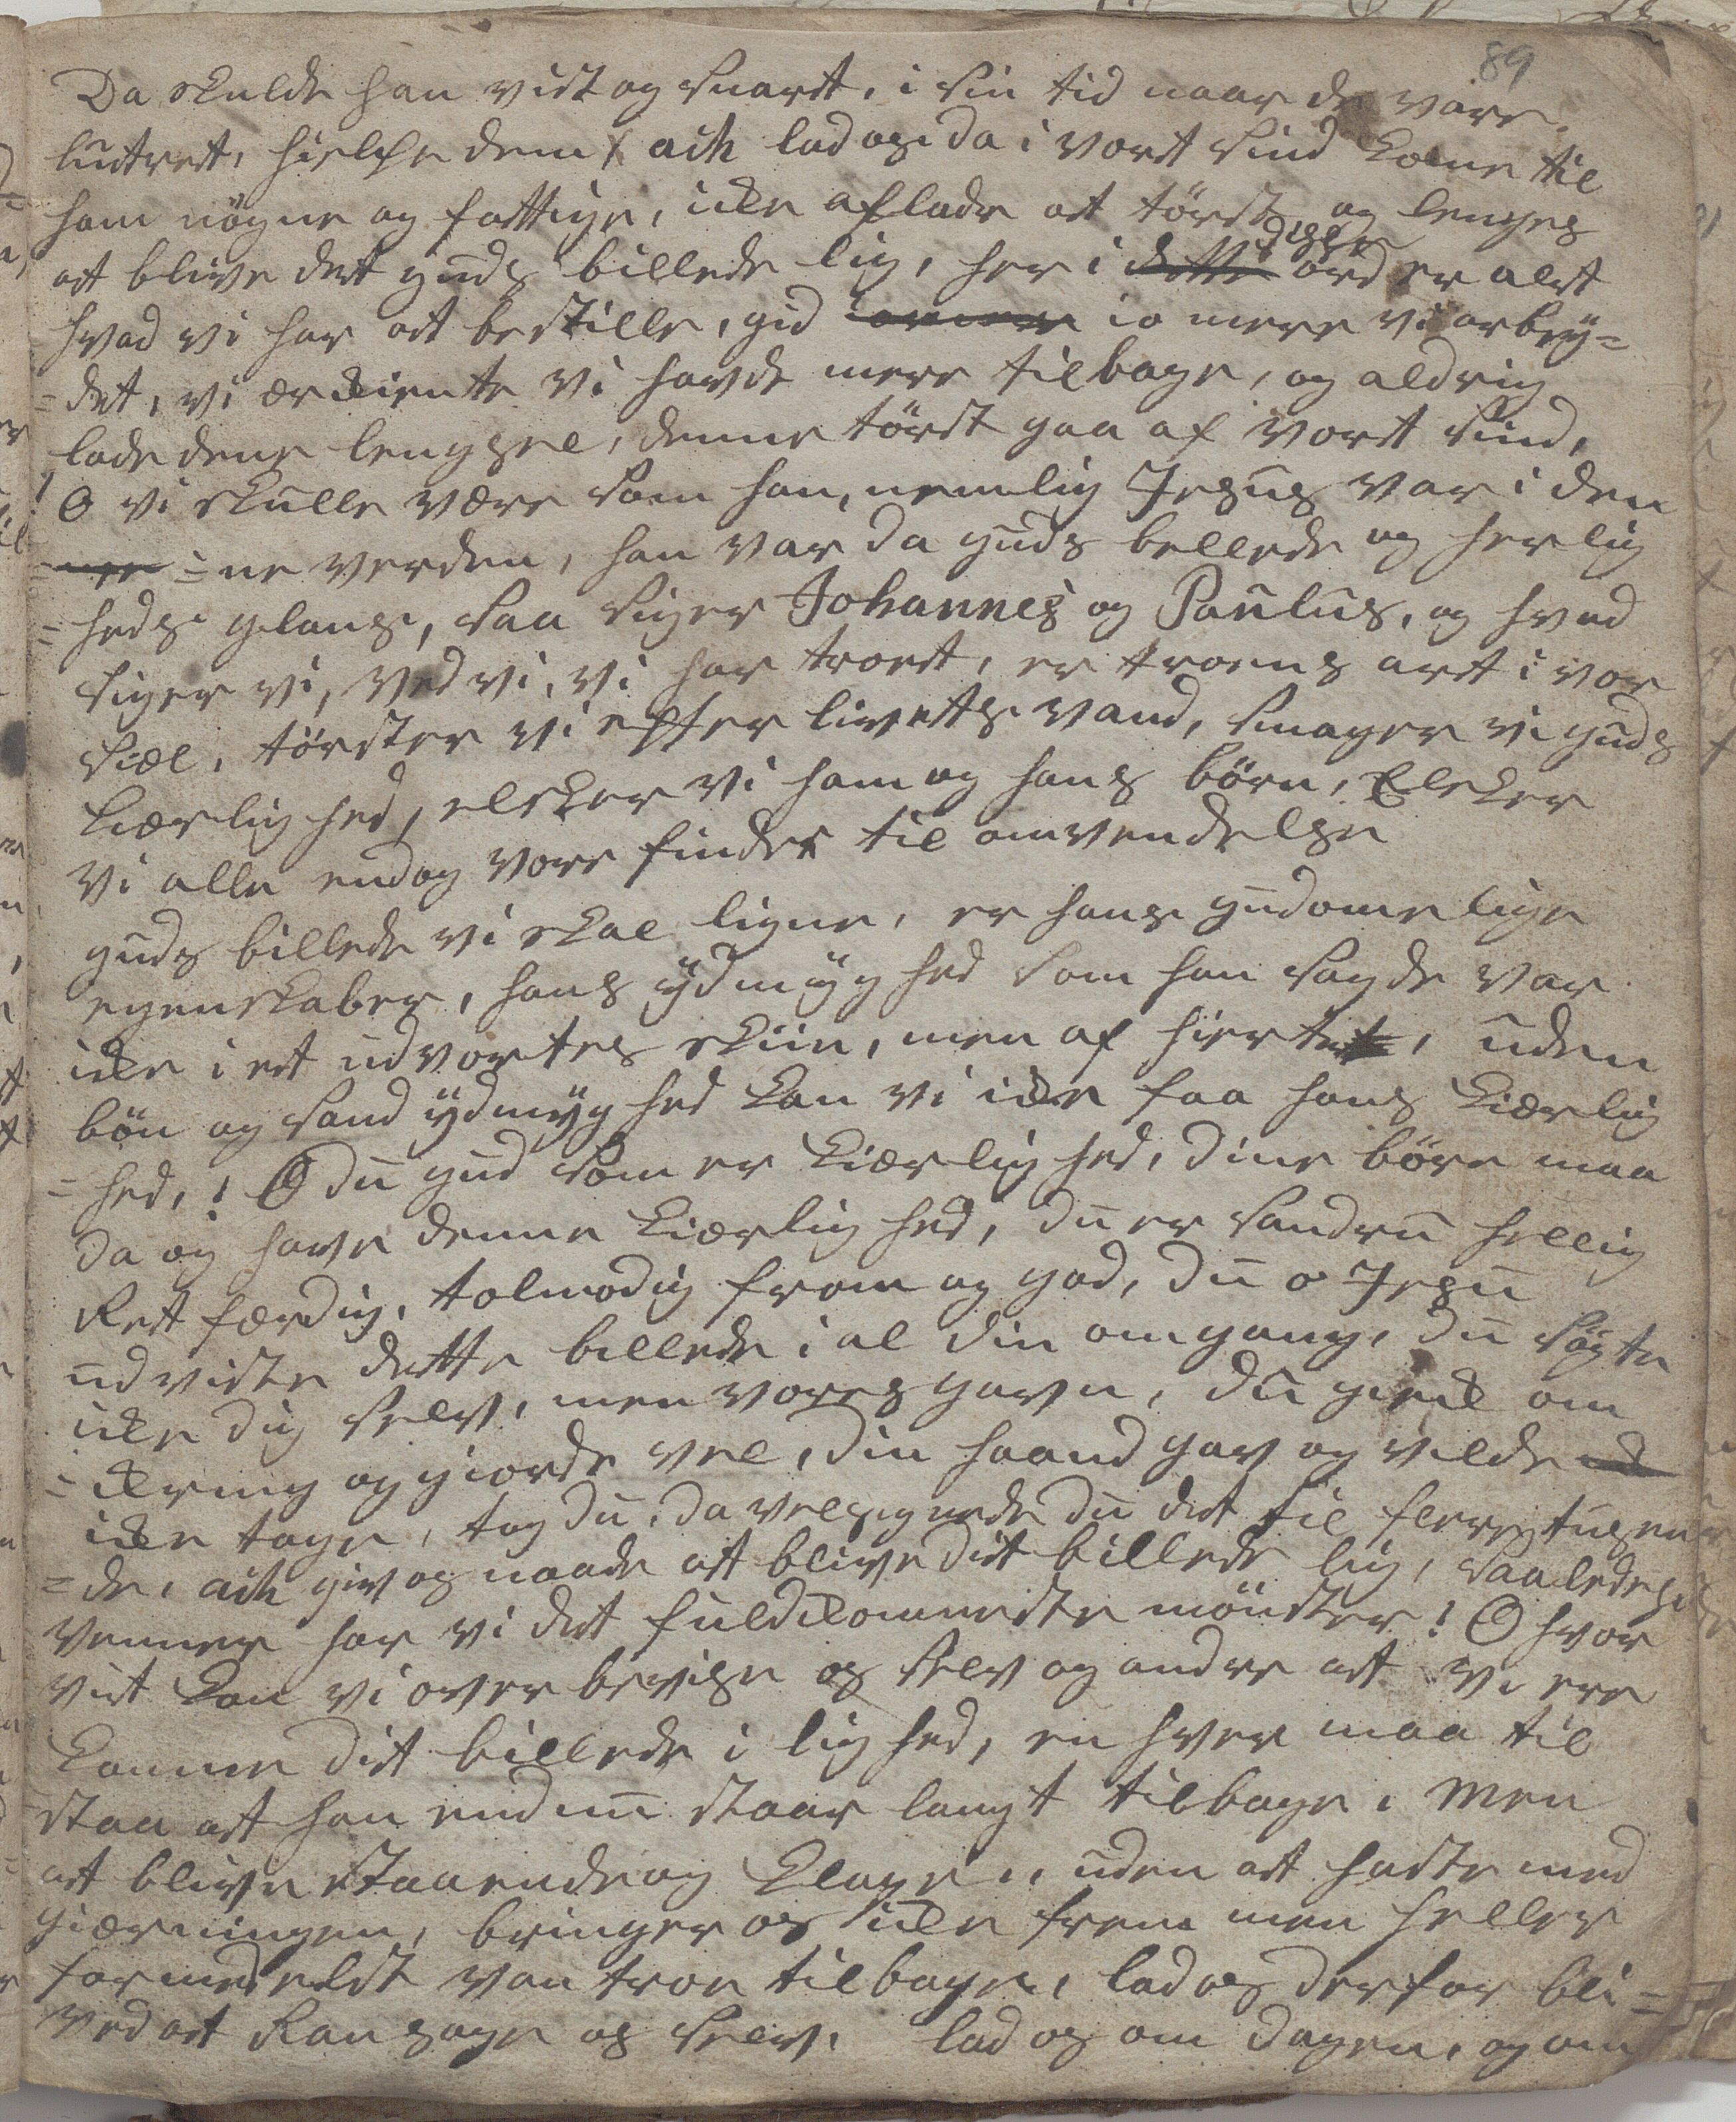 89
Da skulde han vist og snart, i sin tid naar de vare
lutret, hielpe dem, ach lad os da i vort sind kome til
ham nögne og fattige, icke aflade at törste og lenges
disse
at blive det guds billede lig, her i dette ord er alt
hvad vi har at bestille, gid io mere vi arbey=
=det, vi erkiente vi havde mere tilbage, og aldrig
lade dene lengsel, denne törst gaa af vort sind,
! O vi skulle være som han, nemlig Jesus var i den
=ne verden, han var da guds bellede og herlig
=heds glans, saa siger Johannes og Paulus, og hvad
siger vi, ved vi, vi har troet, er troens art i vor
siæl, törster vi efter livets vand, smager vi guds
kiærlighed, elsker vi ham og hans börn, Elsker
vi alle endog vore finder til omvendelse
guds billede vi skal ligne, er hans gudomelige
egenskaber, hans ydmyghed som han sagde var
icke i et udvortes skiin, men af hiertet, uden
bön og sand ydmyghed kan vi icke faa hans kiærlig
=hed,! O du gud som er kiærlighed, dine börn maa
da og have denne kiærlighed, du er sandru hellig
Rett færdig, tolmodig from og god, du o Jesu
udviste dette billede i al din omgang, du sögte
icke dig selv, men vores gavn, du gick om
=kring og giorde vel, din haand gav og vilde
icke tage, tog du, da velsignede du det til flere tusen
=de, ach giv os naade at blive dit billede lig, saaledes
venner har vi det fuldkommeste mönster! O hvor
vit kan vi over bevise os selv og andre at vi ere
komne dit billede i lighed, en hver maa til
staa at han endnu staar langt tilbage, Men
at blive staaende og klage,, uden at haste med
giærningen, bringer os icke frem men heller
formedelst vantroe tilbage, lad os derfor bli=
ved at Ransage os selv, lad os om dagen, og om